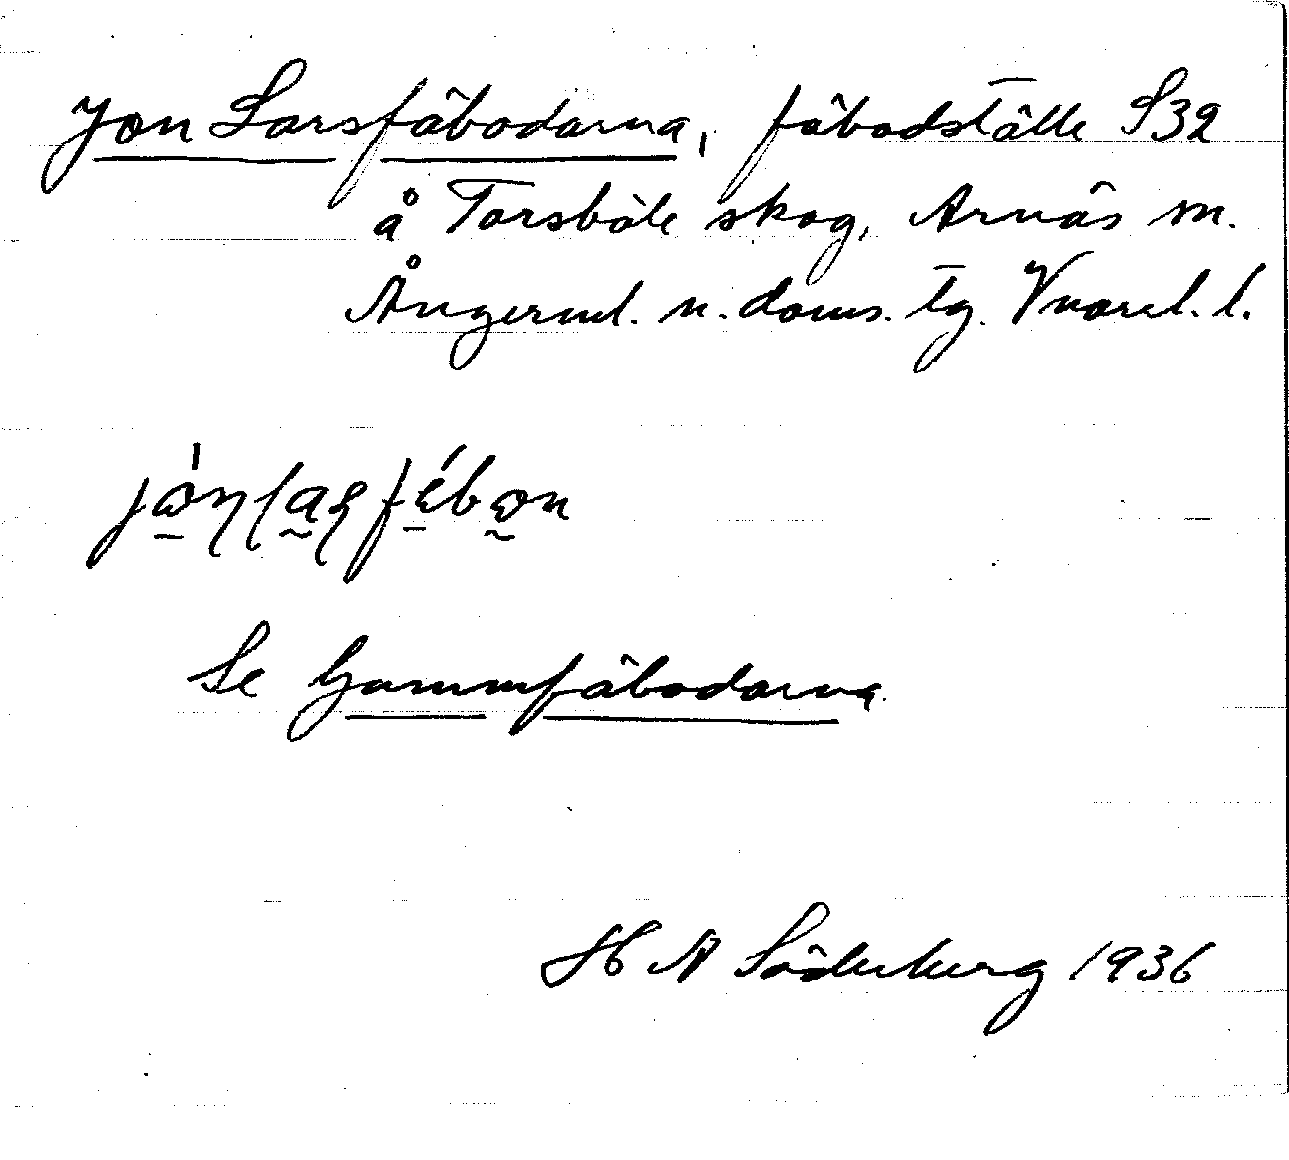 Jon Larsfäbodarna, fäbodställe S32
å Torsböle skog, Arnäs sn.
Ångerml. n. doms. tg. Vnorrl. l.
Se Gammfäbodarna
H A Söderberg 1936